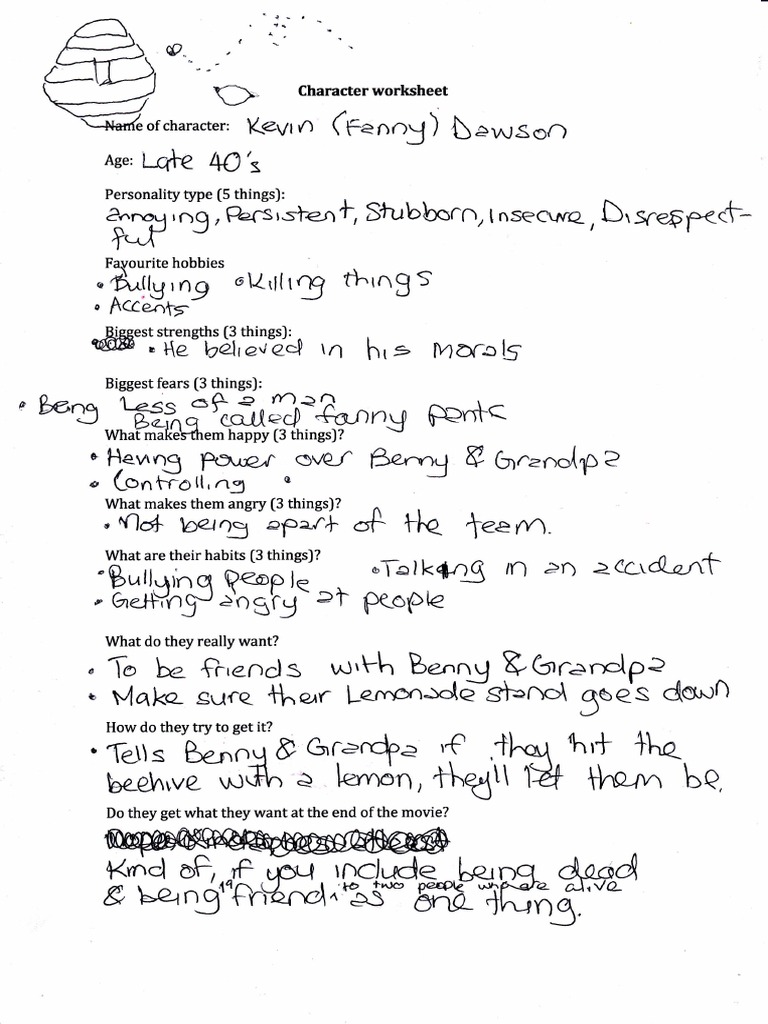 Character worksheet
Name of character: Kevin (Fanny) Dawson
Age: Late 40's
Personality type (5 things):
annoying, Persistent, Stubborn, Insecure, Disrespect-
ful
Favourite hobbies
• Bullying • Killing things
• Accents
Biggest strengths (3 things):
• He believed in his morals
Biggest fears (3 things):
• Being Less of a man
Being called fanny pants
What makes them happy (3 things)?
• Having power over Benny & Grandpa
• Controlling •
What makes them angry (3 things)?
• Not being apart of the team.
What are their habits (3 things)?
• Bullying people • Talking in an accident
• Getting angry at people
What do they really want?
• To be friends with Benny & Grandpa
• Make sure their Lemonade stand goes down
How do they try to get it?
• Tells Benny & Grandpa if they hit the
beehive with a lemon, they'll let them be.
Do they get what they want at the end of the movie?
Kind of, if you include being dead
& being a friend to two people who are alive as one thing.